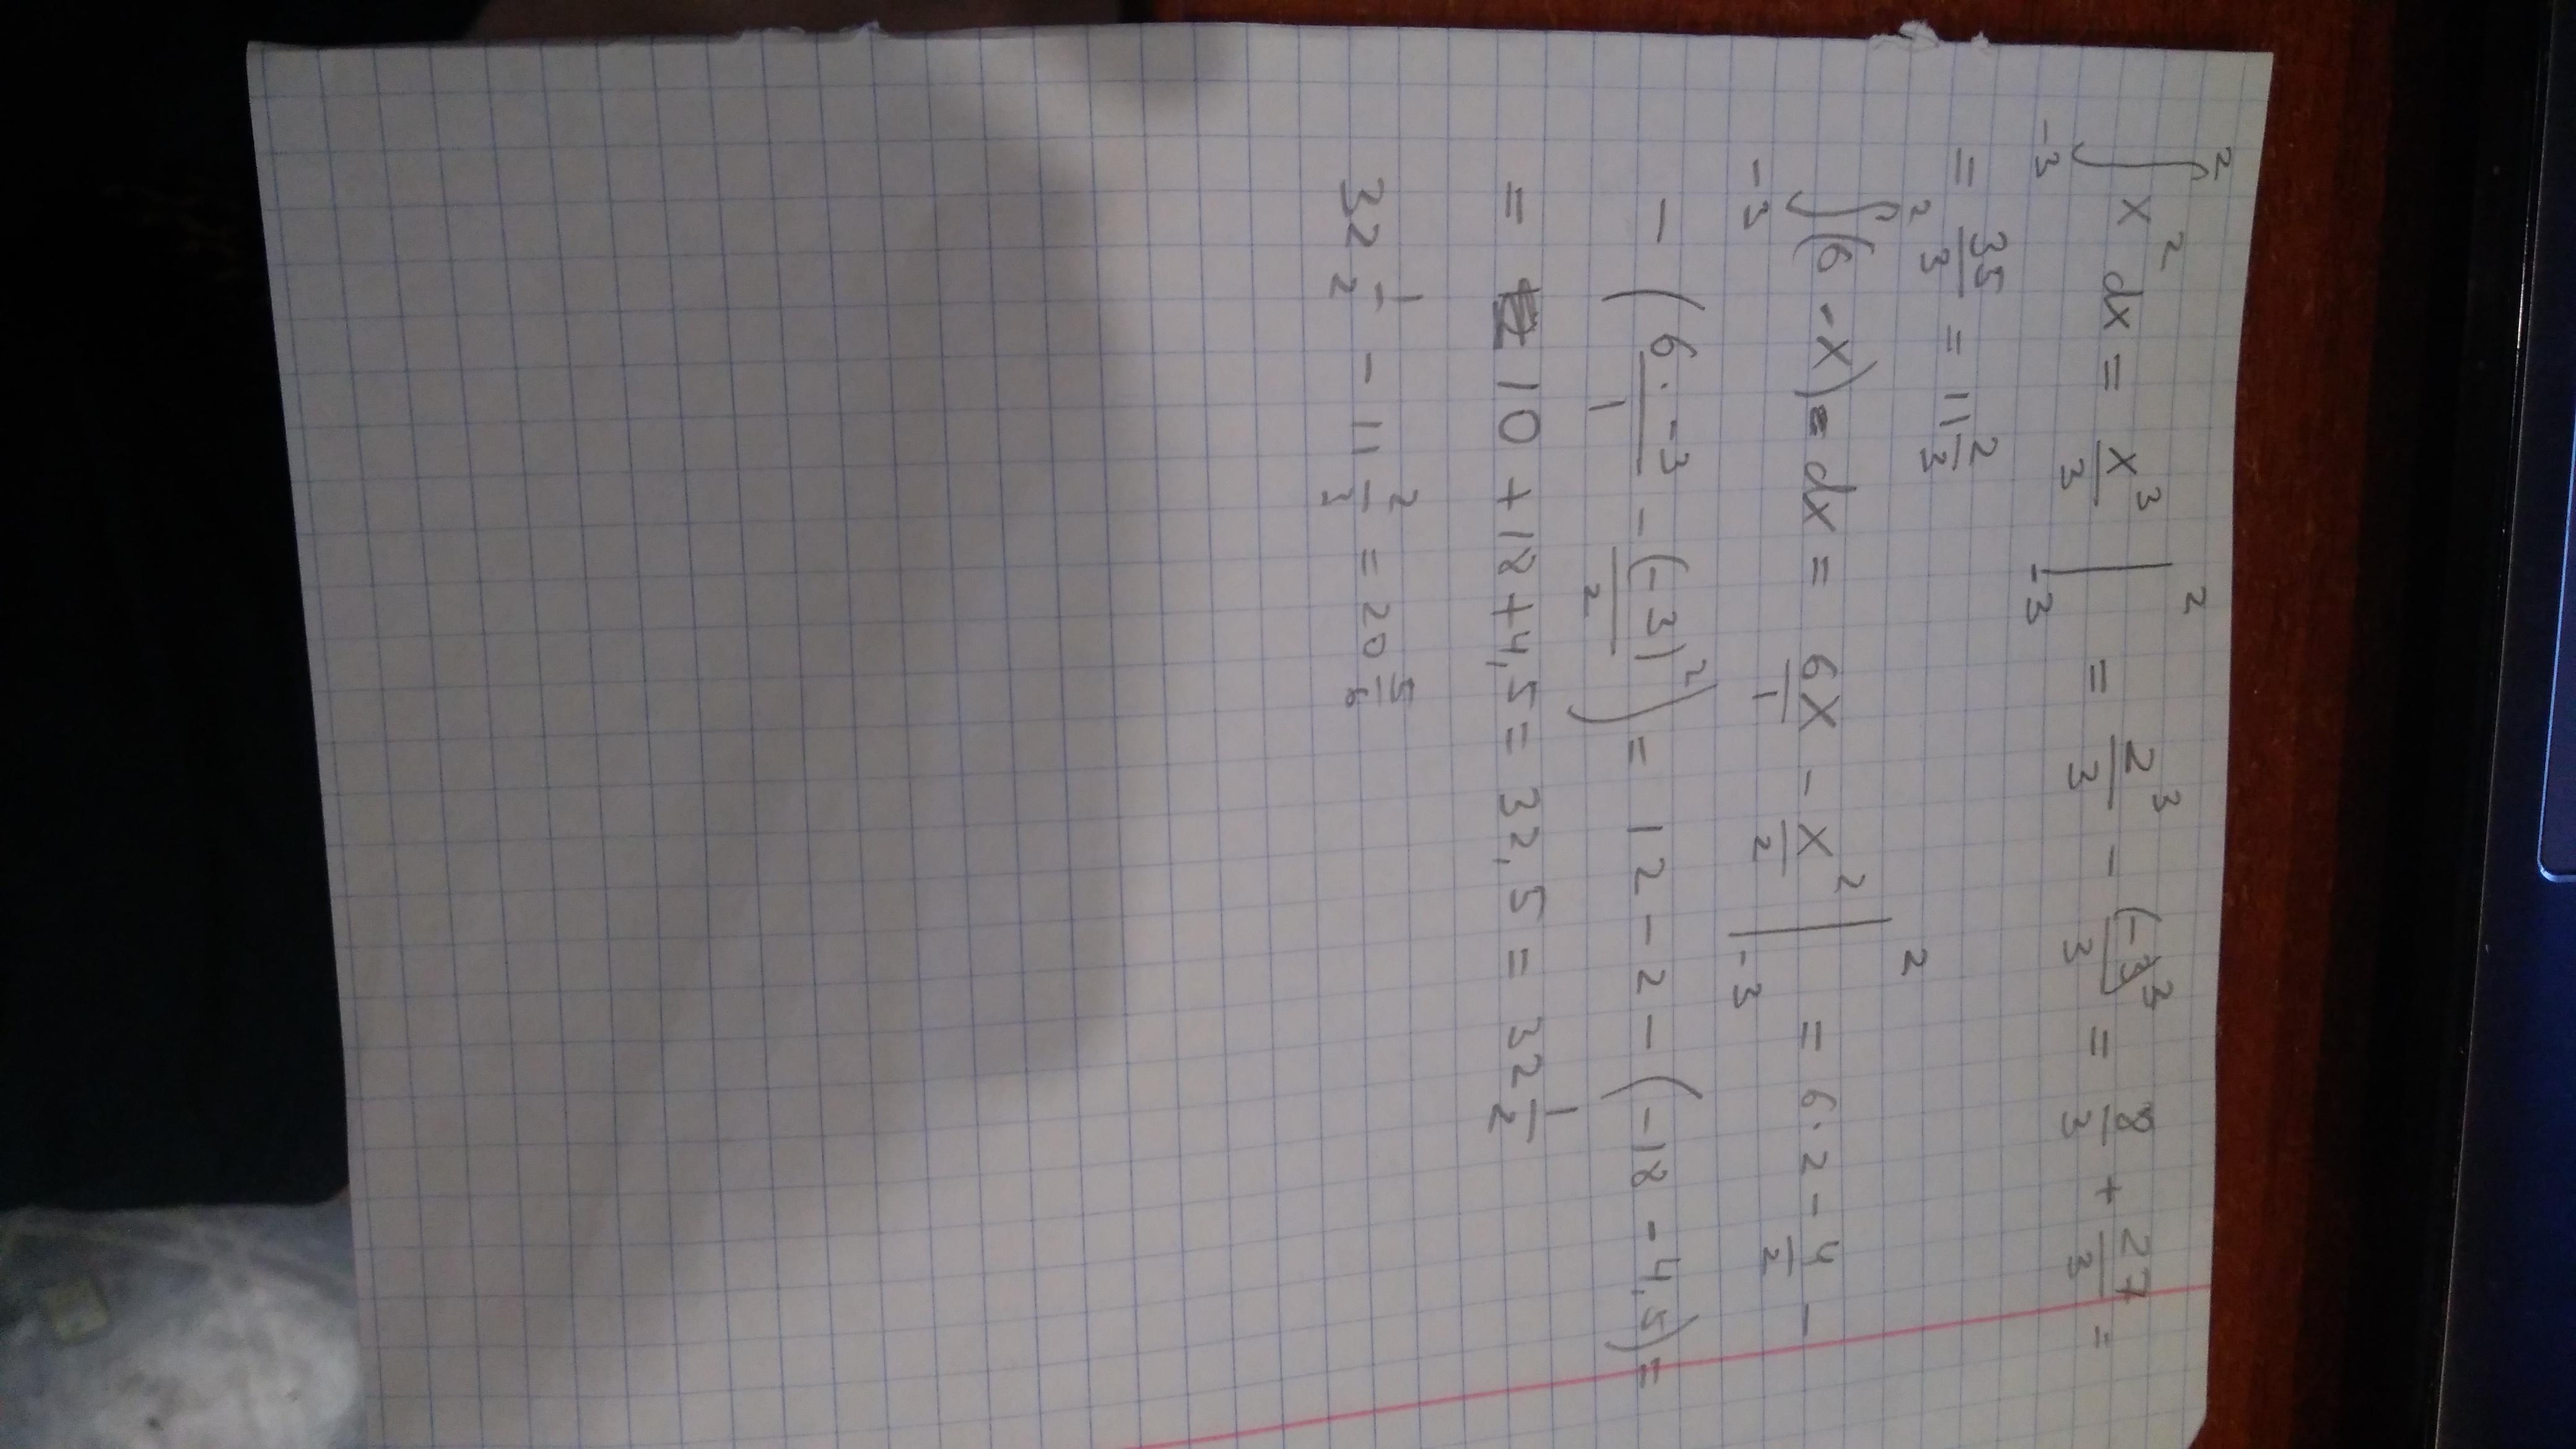 ∫_{-3}^{2} x² dx = x³/3 |_{-3}^{2} = 2³/3 - (-3)³/3 = 8/3 + 27/3 =
= 35/3 = 11 2/3
∫_{-3}^{2} (6 - x) = dx = 6x/1 - x²/2 |_{-3}^{2} = 6·2 - 4/2 -
- (6·-3/1 - (-3)²/2) = 12 - 2 - (-18 - 4,5) =
= 10 + 18 + 4,5 = 32,5 = 32 1/2
32 1/2 - 11 2/3 = 20 5/6